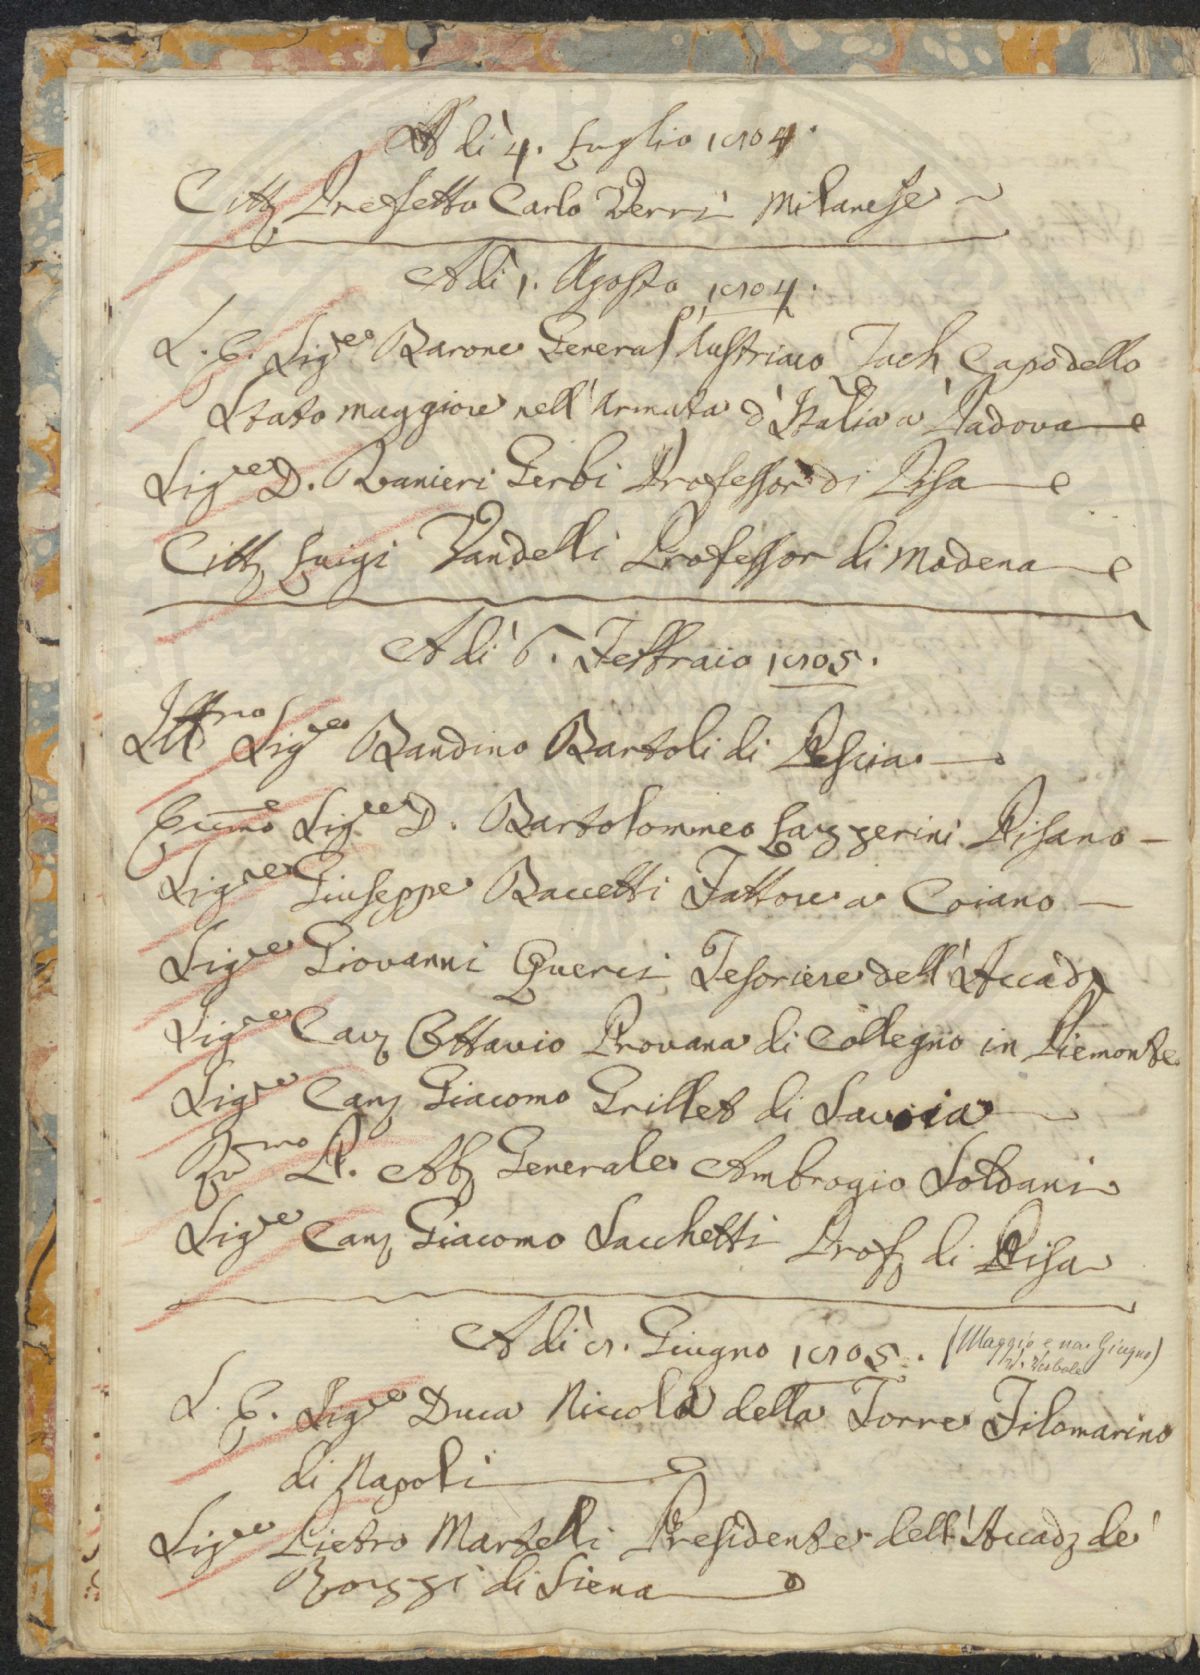 A dì 4. Luglio 1804.
Citt. Prefetto Carlo Verri Milanese
A dì 1. Agosto 1804.
S. E. Sig.re Barone General Austriaco Zach Capo dello
Stato maggiore nell'Armata d'Italia a Padova
Sig.re D. Ranieri Gerbi Professor di Pisa
Citt. Luigi Vandelli Professor di Modena
A dì 6. Febbraio 1805.
Ill.mo Sig.re Bandino Bartoli di Pescia
Ecc.mo Sig.re D. Bartolommeo Lazzerini Pisano
Sig.re Giuseppe Baccetti Fattore a Coiano
Sig.re Giovanni Querci Tesoriere dell'Accad.
Sig.re Cav. Ottavio Provana di Collegno in Piemonte
Sig.re Can. Giacomo Grillet di Savoia
R.mo P. Ab. Generale Ambrogio Soldani
Sig.re Can. Giacomo Sacchetti Prof. di Pisa
A dì 8. Giugno 1805. (Maggio e no Giugno)
S. E. Sig.re Duca Niccola della Torre Filomarino
di Napoli
Sig.re Pietro Martelli Presidente dell'Accad. de'
Rozzi di Siena